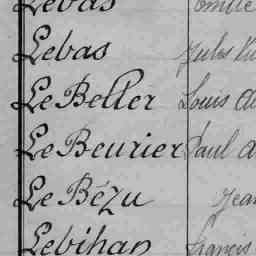 Lebas Emile
Lebas Jules
Le Beller Louis
Le Beurier Paul
Le Bézu Jean
Lebihan Francis